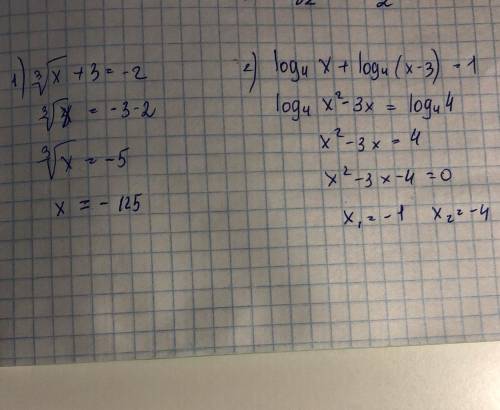 1) ∛x + 3 = -2
∛x = -3-2
∛x = -5
x = -125
2) log₄ x + log₄ (x-3) = 1
log₄ x²-3x = log₄ 4
x²-3x = 4
x²-3x-4 = 0
x₁ = -1 x₂ = -4